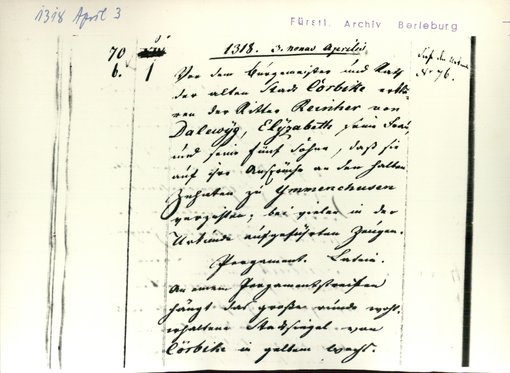 1318 April 3
Fürstl. Archiv Berleburg
70
b. 1
1318. 3. nonas Aprilis.
No 76.
Vor dem Bürgermeister und Rath
der alten Stadt Cörbike erklä-
ren der Ritter Reinher von
Dalewÿg, Elÿzabeth, seine Frau,
und seine fünf Söhne, daß sie
auf ihre Ansprüche an den halben
Zehnten zu Ymmenchusen
verzichten; bei vielen in der
Urkunde aufgeführten Zeugen.
Pergament. Latein.
An einem Pergamentstreifen
hängt das große runde wohl-
erhaltene Stadtsiegel von
Cörbike in gelbem Wachs.